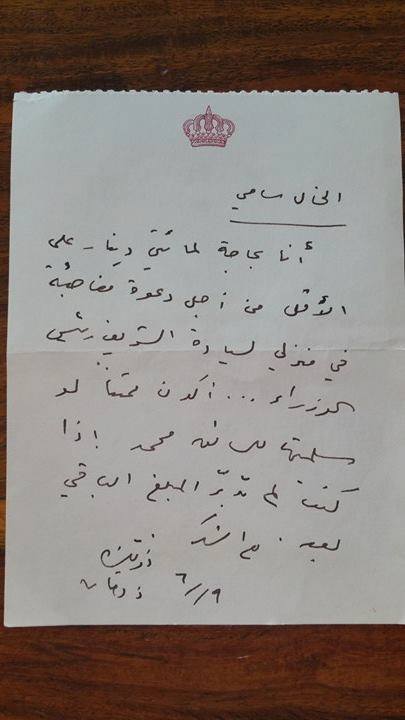 الخال سامي
أنا بحاجة لمائتي دينار على
الأقل من أجل دعوة مفاجئة
في منزلي لسيادة الشريف رئيس
الوزراء ... أكون ممتناً لو
سلمتها للسائق محمد إذا
كنت لم تدبّر المبلغ الباقي
بعد . مع الشكر
٦/١٩